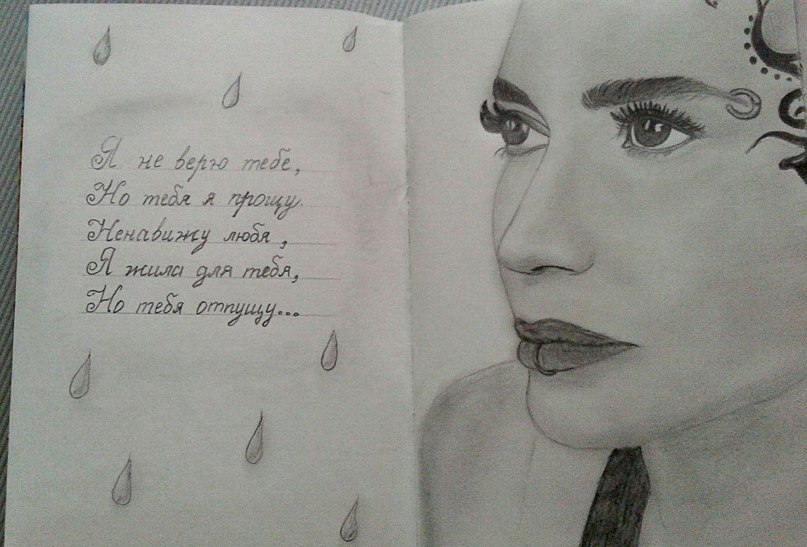 Я не верю тебе,
Но тебя я прощу.
Ненавижу любя,
Я жила для тебя,
Но тебя отпущу...